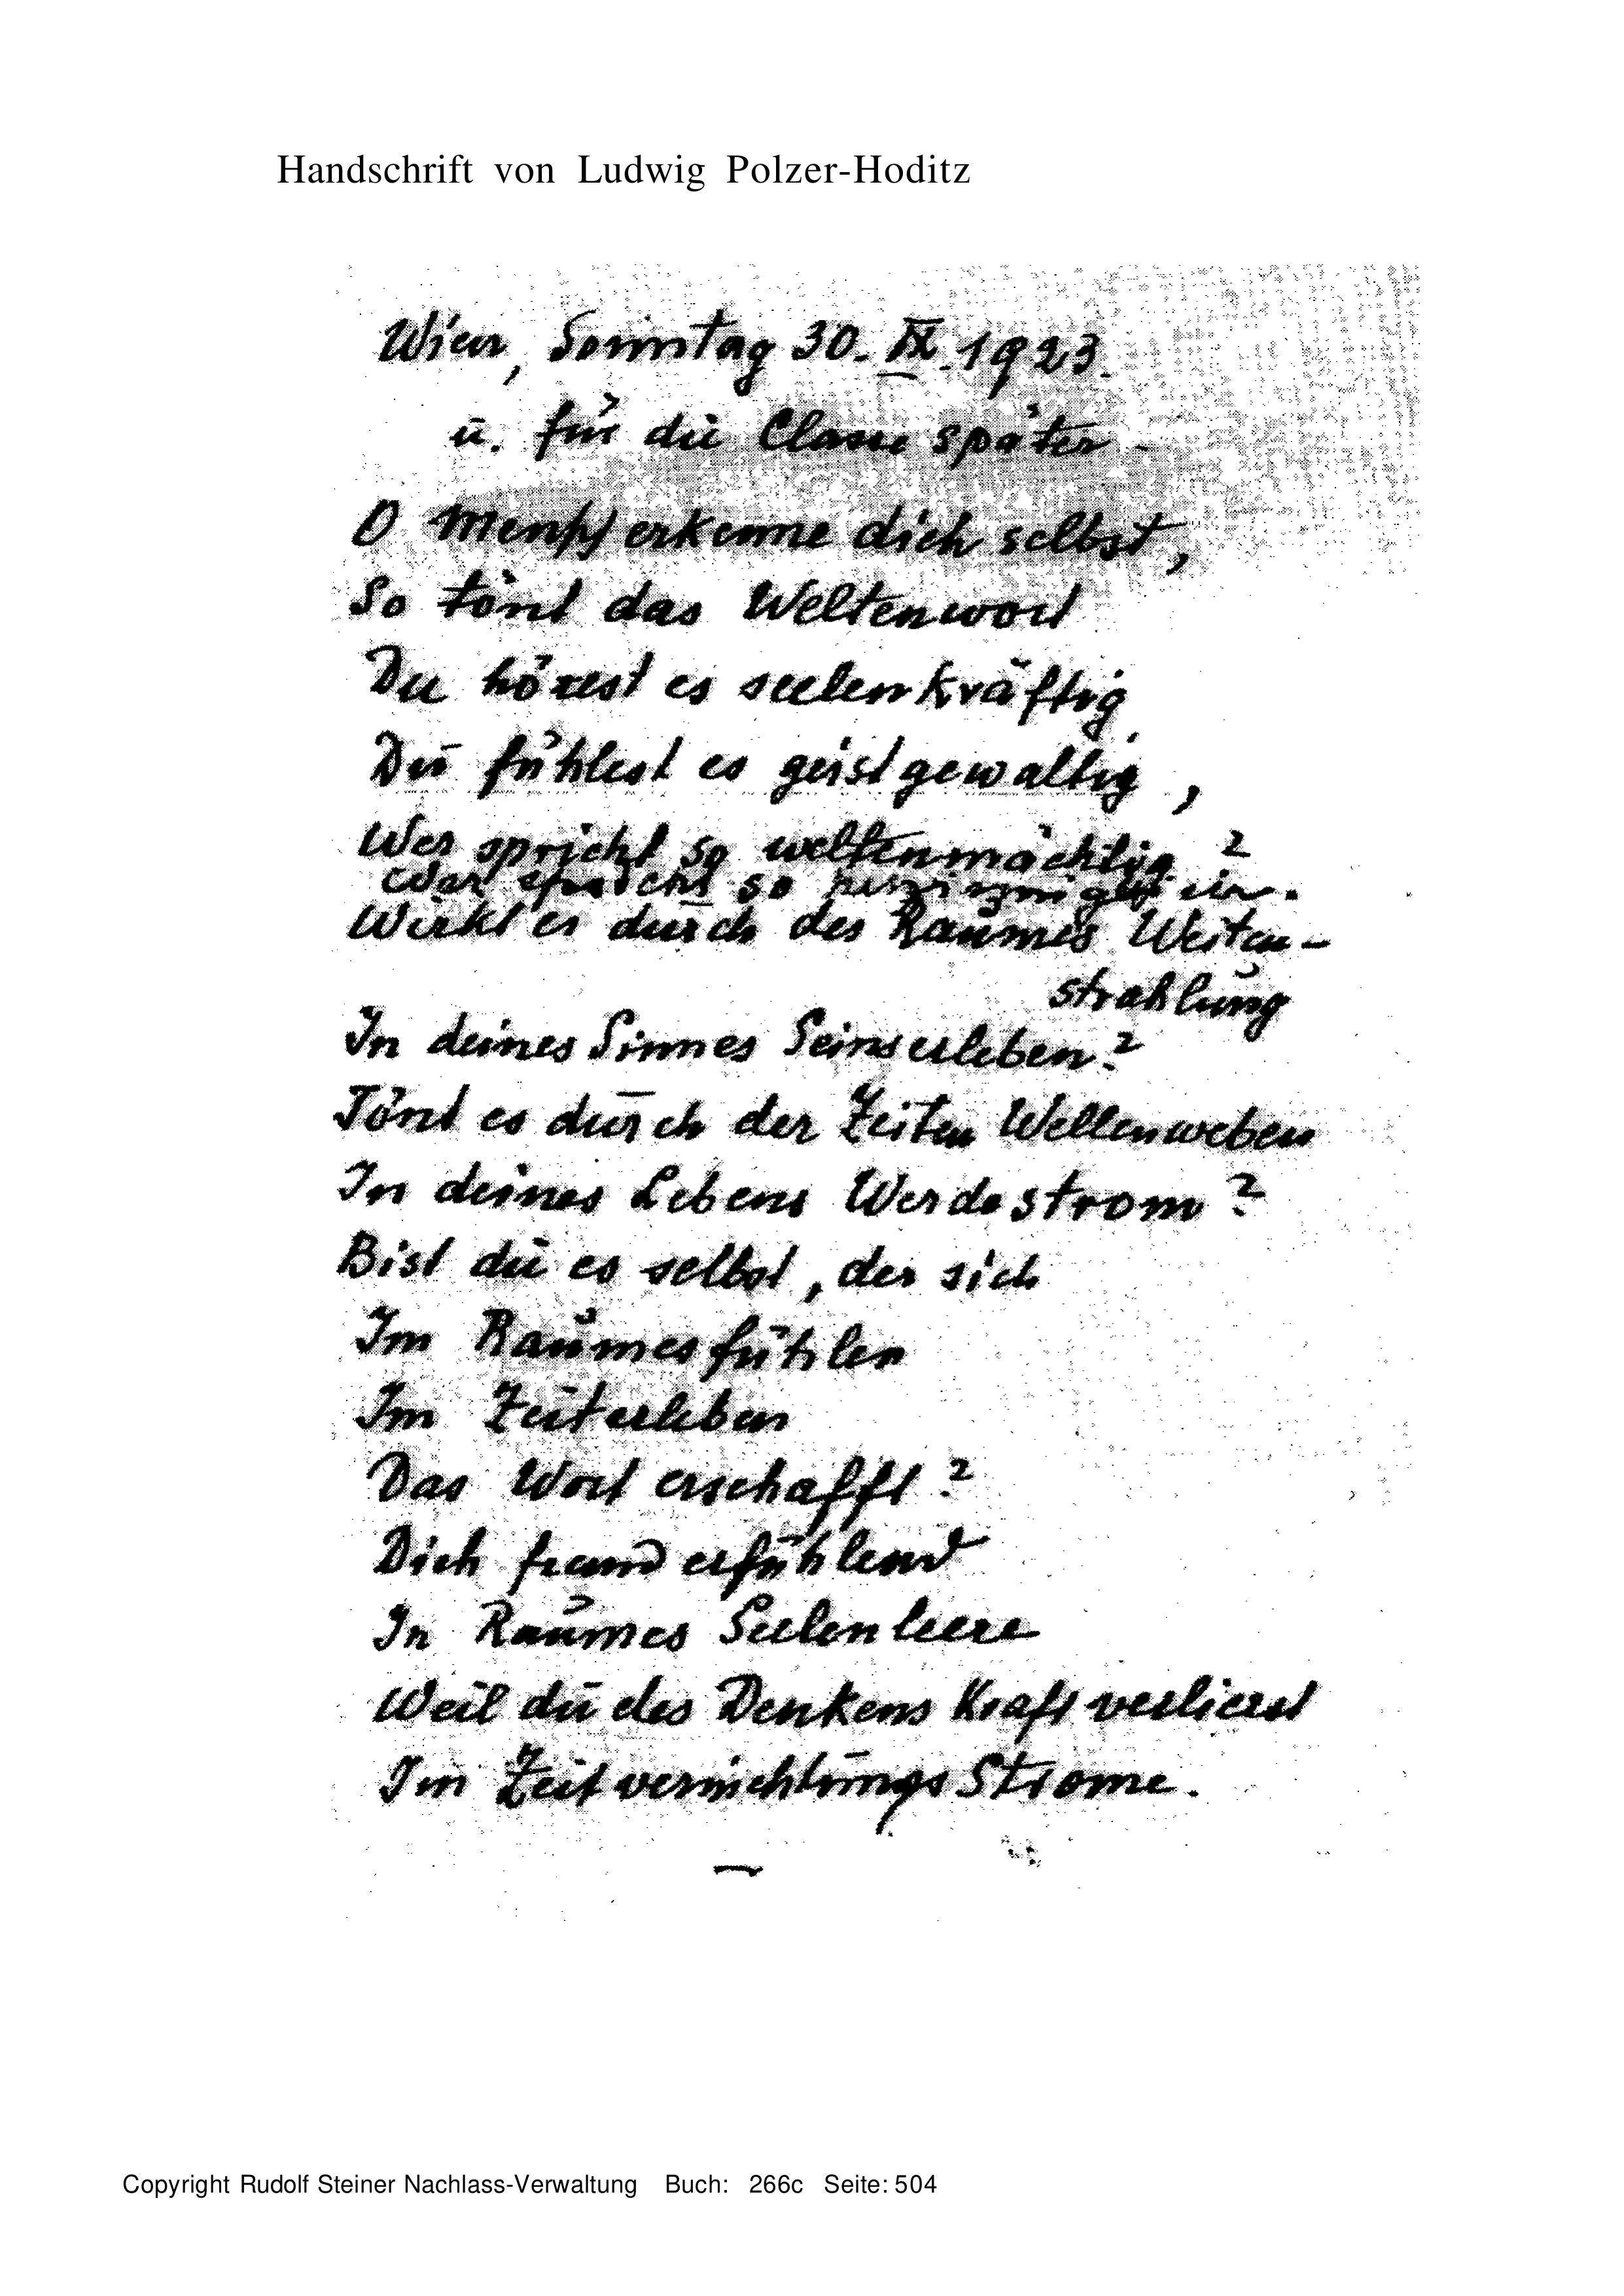 Handschrift von Ludwig Polzer-Hoditz
Wien, Sonntag 30. IX. 1923.
u. für die Classe später -
O Mensch erkenne dich selbst,
So tönt das Weltenwort
Du hörest es seelenkräftig
Du fühlest es geistgewaltig,
Wer spricht so weltenmächtig?
Wer spricht so
Wirkt es durch des Raumes Weiten-
strahlung
In deines Sinnes Seinserleben?
Tönt es durch der Zeiten Wellenweben
In deines Lebens Werdestrom?
Bist du es selbst, der sich
Im Raumesfühlen
Im Zeiterleben
Das Wort erschafft?
Dich fremd erfühlend
In Raumes Seelenleere
Weil du des Denkens Kraft verlierst
Im Zeitvernichtungs Strome.
Copyright Rudolf Steiner Nachlass-Verwaltung Buch: 266c Seite: 504